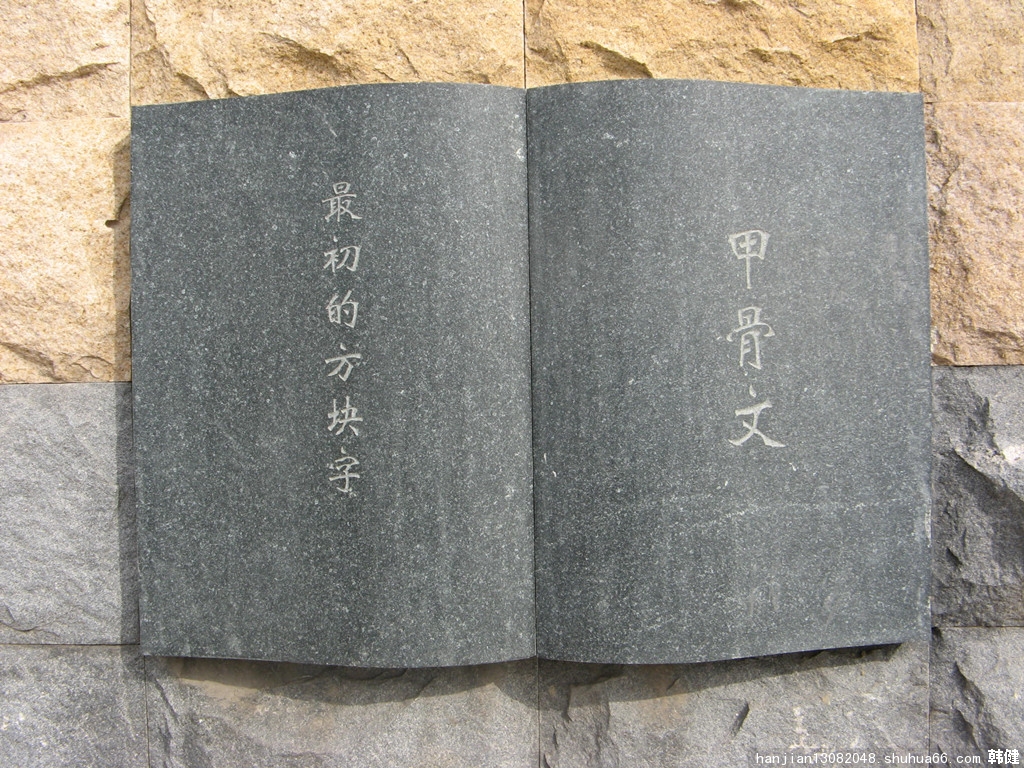 甲骨文
最初的方块字
hanjian13082048.shuhua66.com 韩健